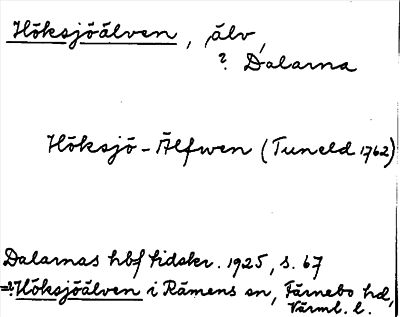 Höksjöälven, älv,
? Dalarna
Höksjö-Älfwen (Tuneld 1762)
Dalarnas hbf tidskr. 1925, s. 67
=? Höksjöälven i Rämens sn, Färnebo hd,
Värml. l.